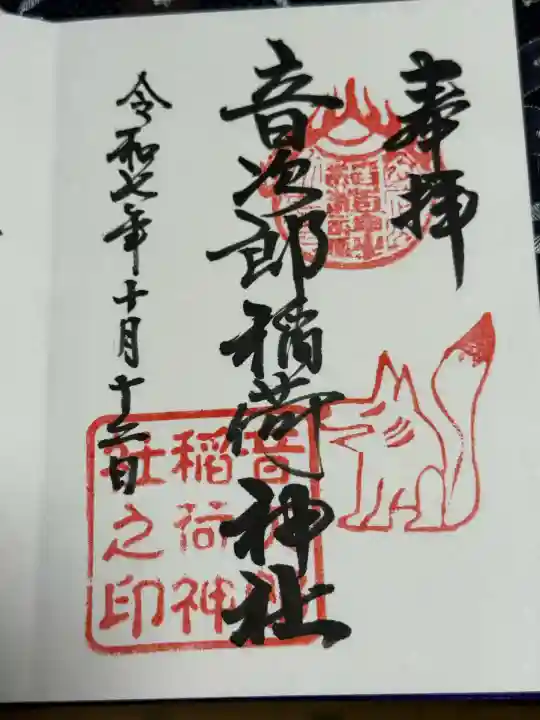 奉拝
音次郎稲荷神社
令和七年十月十二日
音次郎
稲荷神
社之印